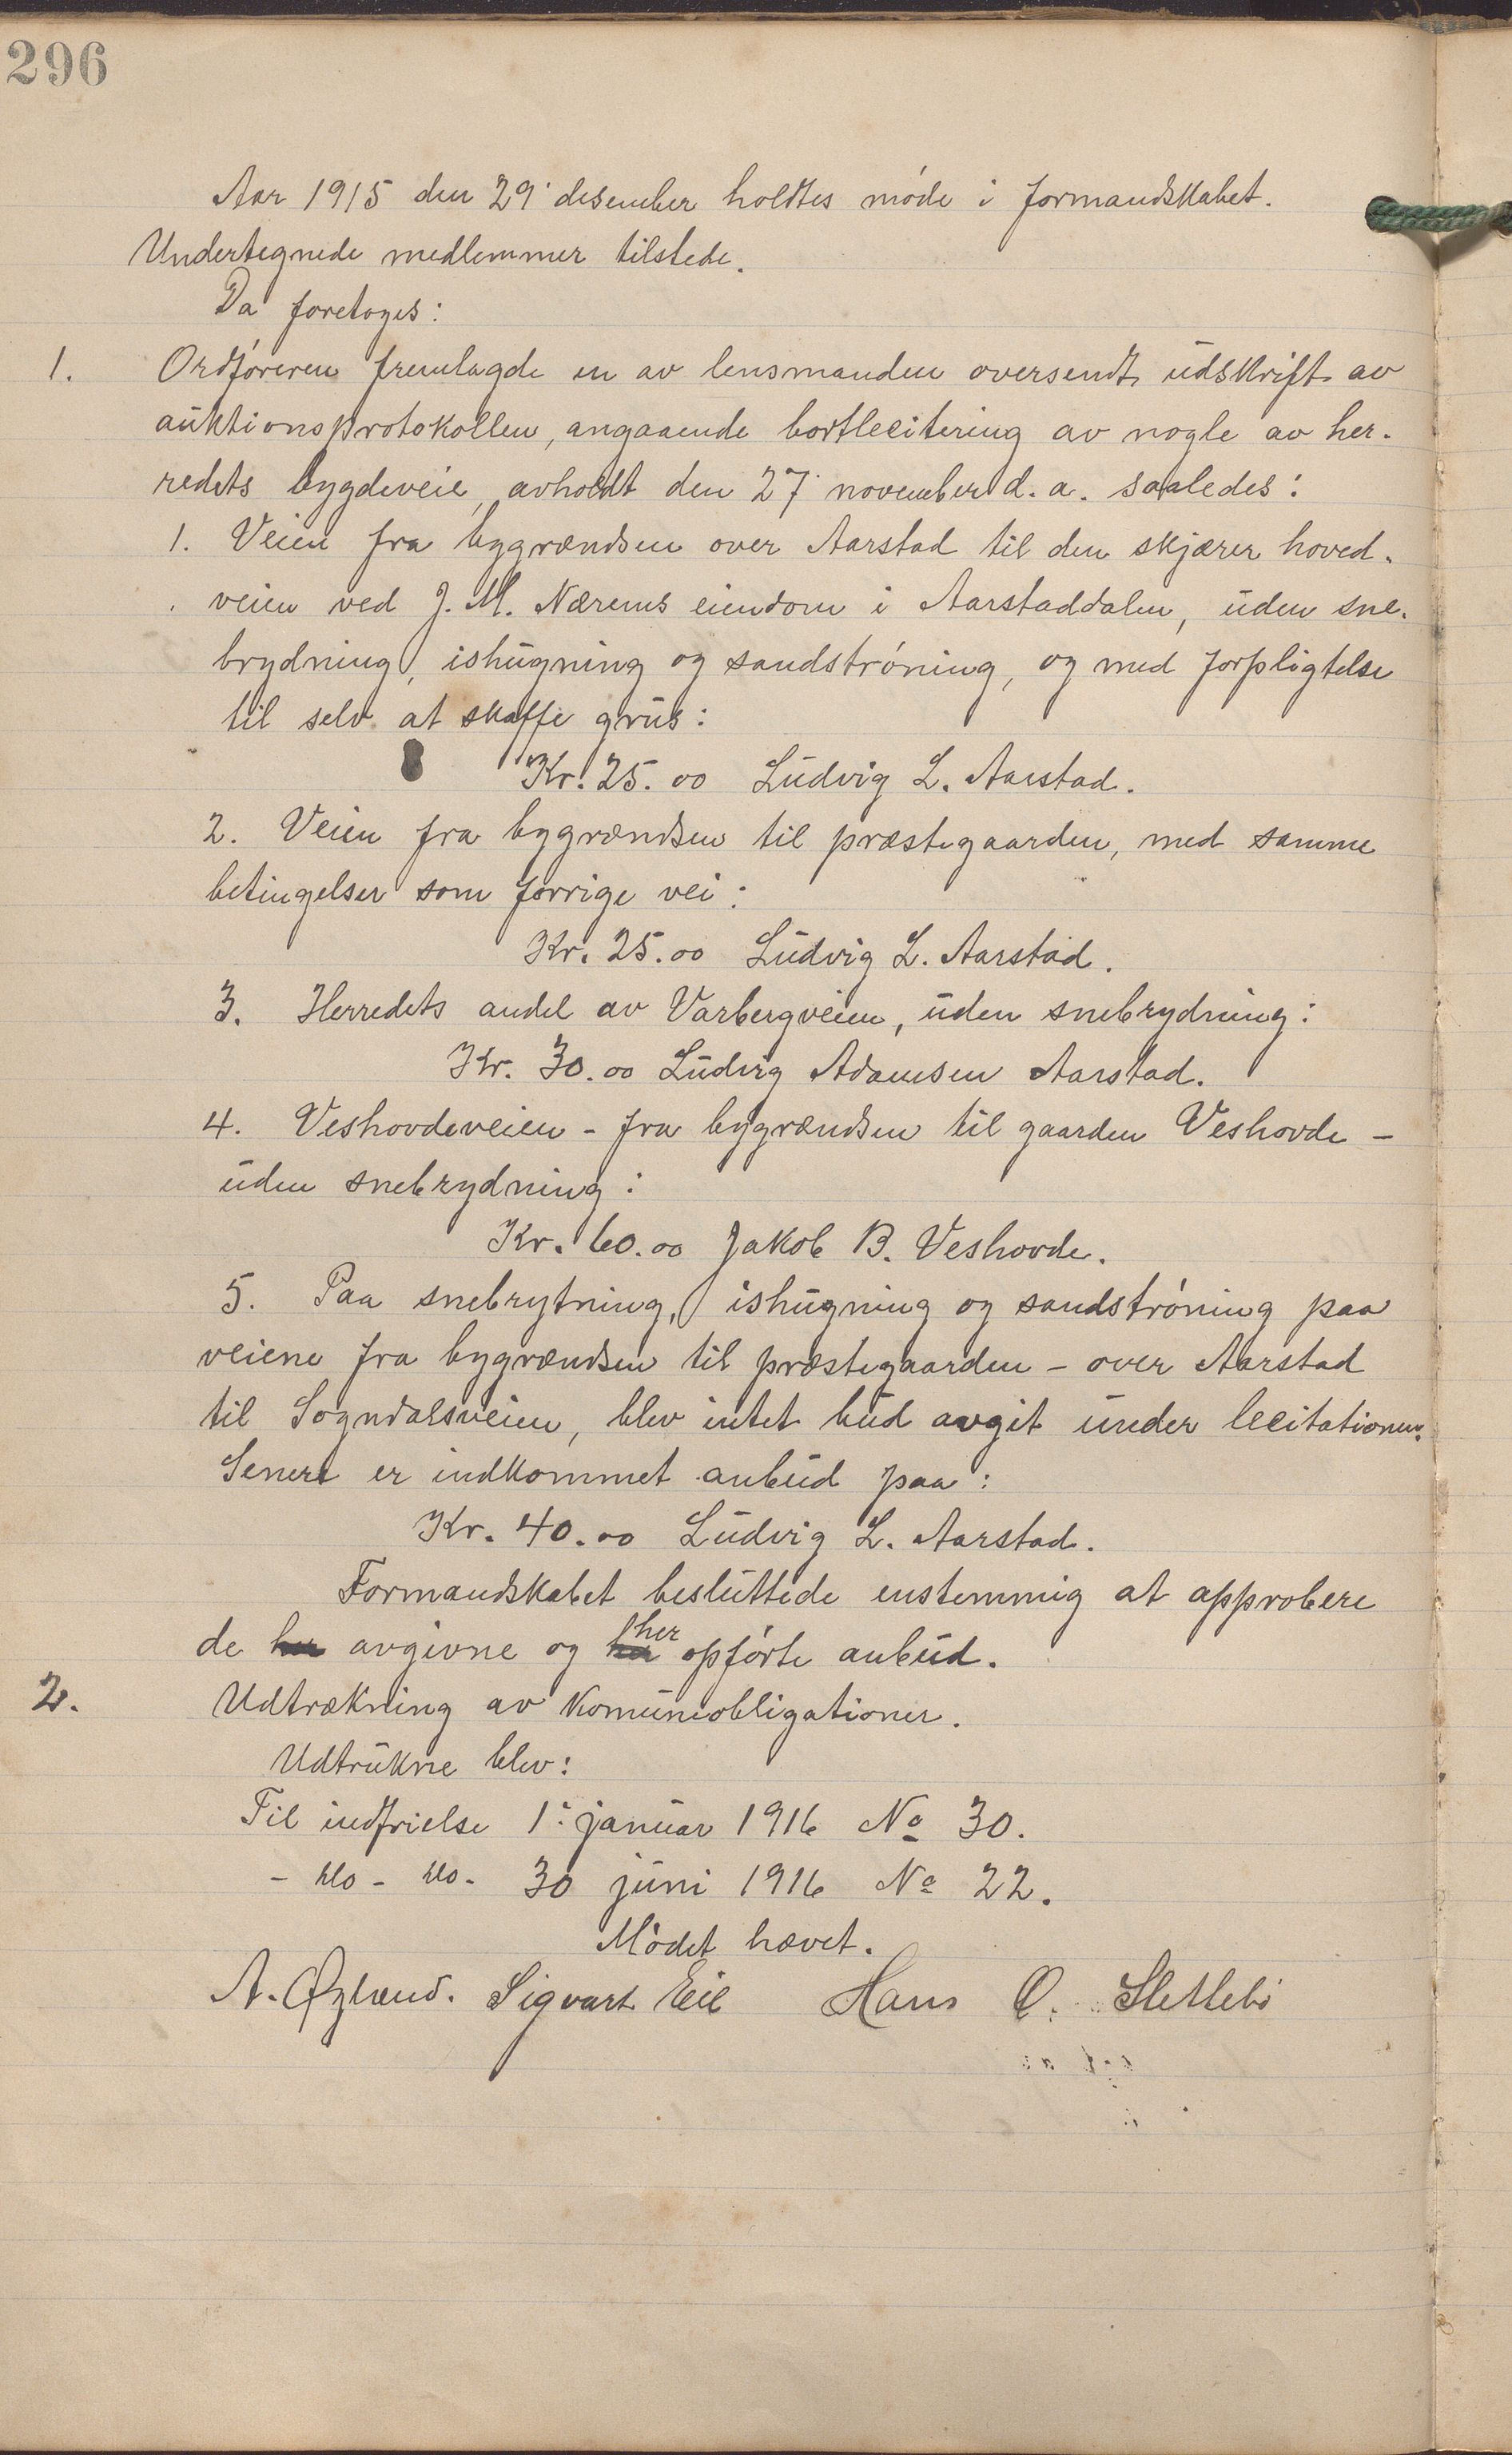 296
Aar 1915 den 29' desember holdtes møde i formandskabet.
Undertegnede medlemmer tilstede.
Da foretoges:
1. Ordføreren fremlagde en av lensmanden oversendt udskrift av
auktionsprotokollen, angaaende bortlicitering av nogle av her-
redets bygdeveie, avholdt den 27' november d. a. saaledes:
1. Veien fra bygrændsen over Aarstad til den skjærer hoved-
veien ved J. M. Nærems eiendom i Aarstaddalen, uden sne-
brydning, ishugning og sandstrøning, og med forpligtelse
til selv at skaffe grus:
Kr. 25.00 Ludvig L. Aarstad.
2. Veien fra bygrændsen til præstegaarden, med samme
betingelser som forrige vei:
Kr. 25.00 Ludvig L. Aarstad.
3. Herredets andel av Varbergveien, uden snebrydning:
Kr. 30.00 Ludvig Adamsen Aarstad.
4. Veshovdeveien - fra bygrændsen til gaarden Veshovde -
uden snebrydning:
Kr. 60.00 Jakob B. Veshovde.
5. Paa snebrytning, ishugning og sandstrøning paa
veiene fra bygrændsen til præstegaarden - over Aarstad
til Sogndalsveien, blev intet bud avgit under licitationen.
Senere er indkommet anbud paa:
Kr. 40.00 Ludvig L. Aarstad.
Formandskabet besluttede enstemmig at approbere
de her avgivne og her opførte anbud.
2. Udtrækning av komuneobligationer.
Udtrukne blev:
Til indfrielse 1' januar 1916 No 30.
- do - do - 30 juni 1916 No 22.
Mødet hævet.
A. Øglænd. Sigvart Eie Hans O. Slettebø